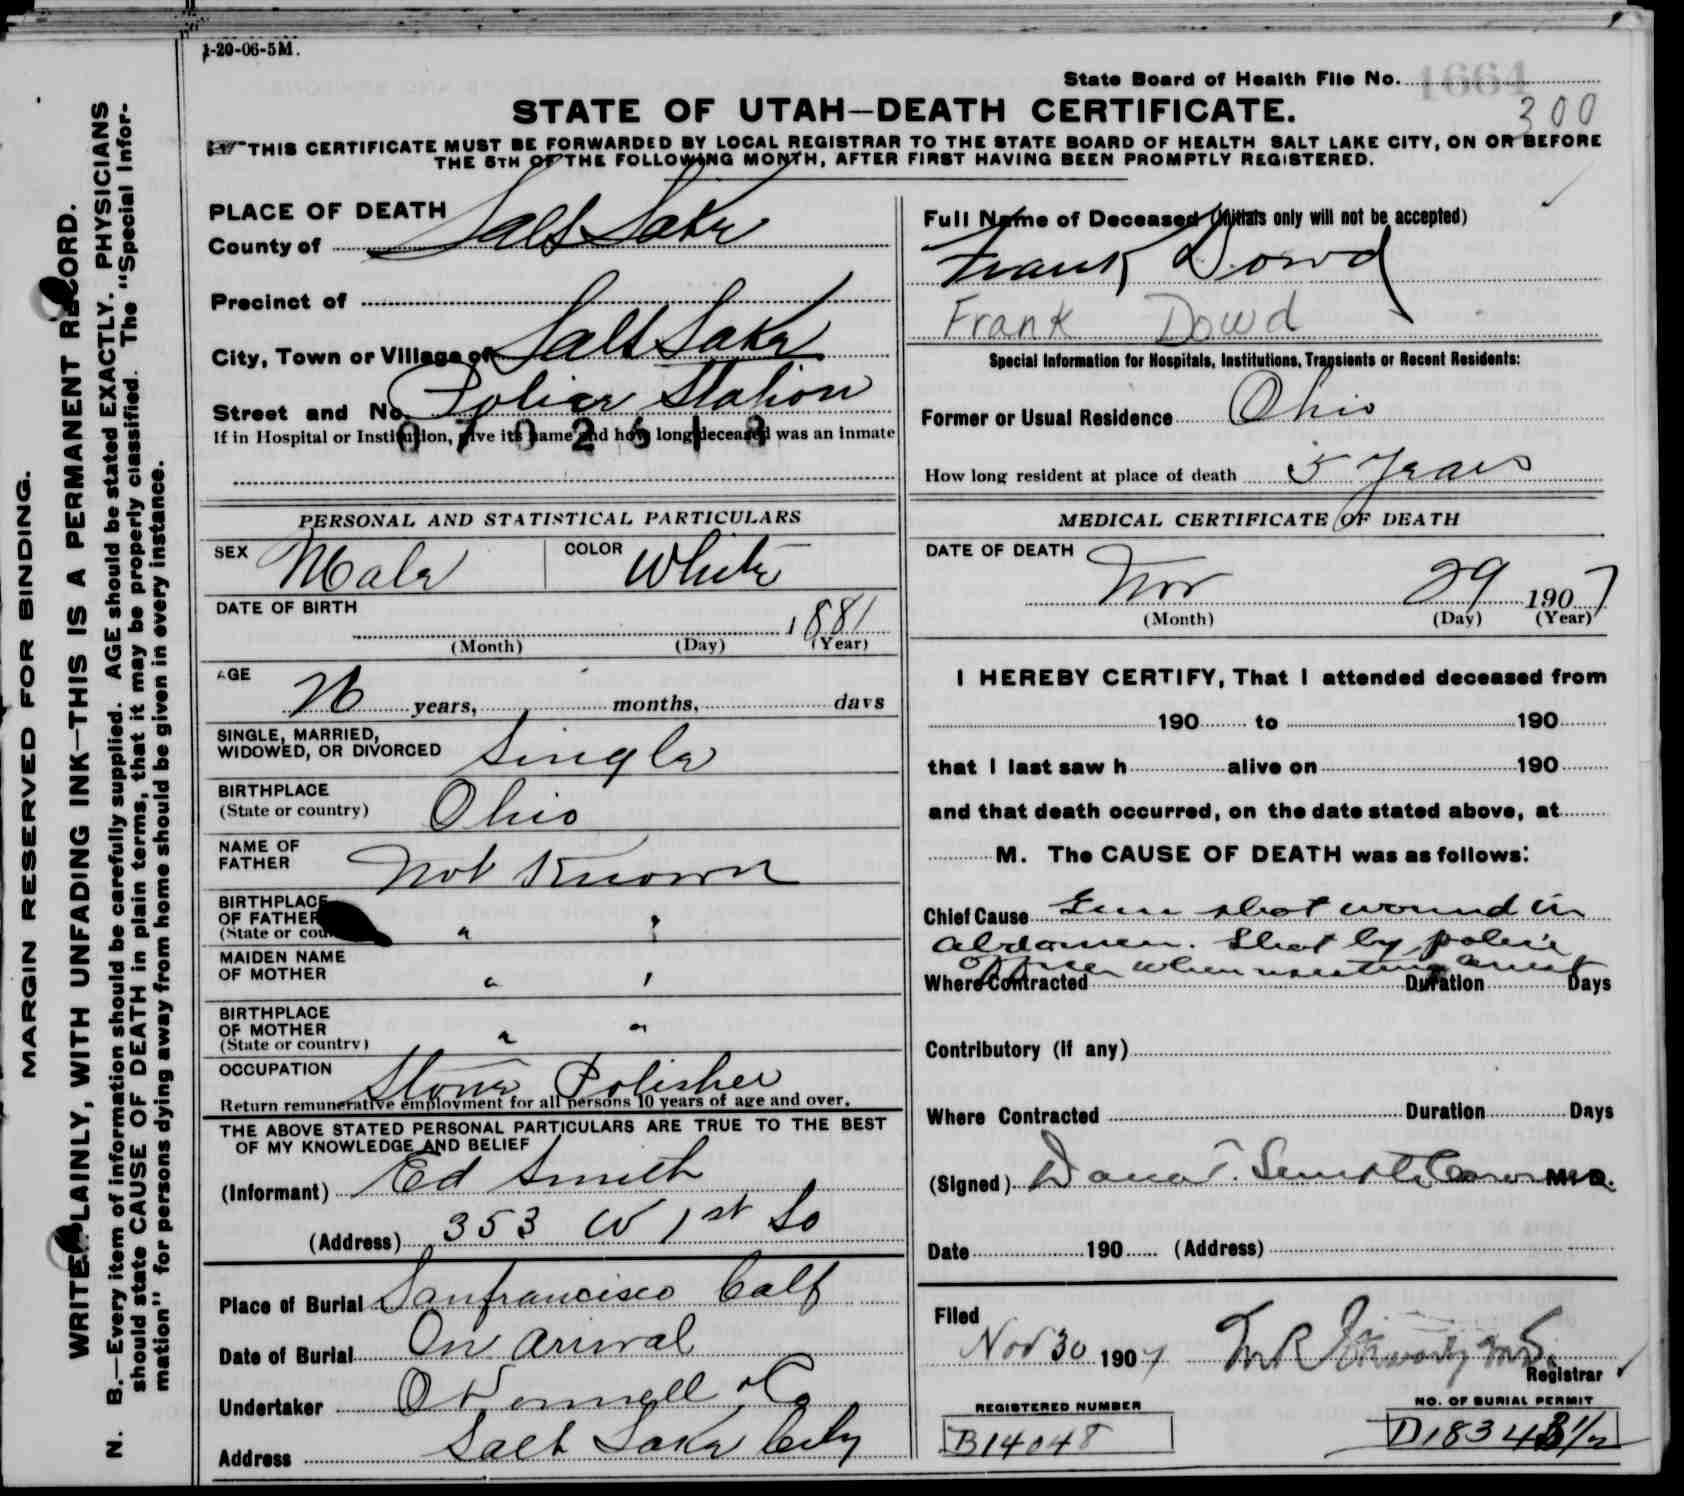 1-20-06-5M.
State Board of Health File No. 1664
300
STATE OF UTAH—DEATH CERTIFICATE.
THIS CERTIFICATE MUST BE FORWARDED BY LOCAL REGISTRAR TO THE STATE BOARD OF HEALTH SALT LAKE CITY, ON OR BEFORE
THE 5TH OF THE FOLLOWING MONTH, AFTER FIRST HAVING BEEN PROMPTLY REGISTERED.
MARGIN RESERVED FOR BINDING.
WRITE PLAINLY, WITH UNFADING INK—THIS IS A PERMANENT RECORD.
N. B.—Every item of information should be carefully supplied. AGE should be stated EXACTLY. PHYSICIANS
should state CAUSE OF DEATH in plain terms, that it may be properly classified. The "Special Infor-
mation" for persons dying away from home should be given in every instance.
PLACE OF DEATH
County of Salt Lake
Precinct of
City, Town or Village of Salt Lake
Street and No. Police Station
0702513
If in Hospital or Institution, give its name and how long deceased was an inmate
Full Name of Deceased (Initials only will not be accepted)
Frank Dowd
Frank Dowd
Special Information for Hospitals, Institutions, Transients or Recent Residents:
Former or Usual Residence Ohio
How long resident at place of death 5 years
PERSONAL AND STATISTICAL PARTICULARS
SEX Male COLOR White
DATE OF BIRTH
1881
(Month) (Day) (Year)
AGE
26 years, months, days
SINGLE, MARRIED,
WIDOWED, OR DIVORCED Single
BIRTHPLACE
(State or country) Ohio
NAME OF
FATHER Not Known
BIRTHPLACE
OF FATHER " "
(State or cou
MAIDEN NAME
OF MOTHER " "
BIRTHPLACE
OF MOTHER " "
(State or country)
OCCUPATION Stone Polisher
Return remunerative employment for all persons 10 years of age and over.
THE ABOVE STATED PERSONAL PARTICULARS ARE TRUE TO THE BEST
OF MY KNOWLEDGE AND BELIEF
(Informant) Ed Smith
(Address) 353 W 1st So
Place of Burial Sanfrancisco Calf
Date of Burial On arival
Undertaker O'Donnell & Co
Address Salt Lake City
MEDICAL CERTIFICATE OF DEATH
DATE OF DEATH
Nov 29 1907
(Month) (Day) (Year)
I HEREBY CERTIFY, That I attended deceased from
190 to 190
that I last saw h alive on 190
and that death occurred, on the date stated above, at
M. The CAUSE OF DEATH was as follows:
Chief Cause Gun shot wound in
abdomen. Shot by police
officer when resisting arrest
Where Contracted Duration Days
Contributory (if any)
Where Contracted Duration Days
(Signed) Dana T. Smith Coroner M. D.
Date 190 (Address)
Filed
Nov 30 1907
Registrar
REGISTERED NUMBER
B14048
NO. OF BURIAL PERMIT
D18343 1/2